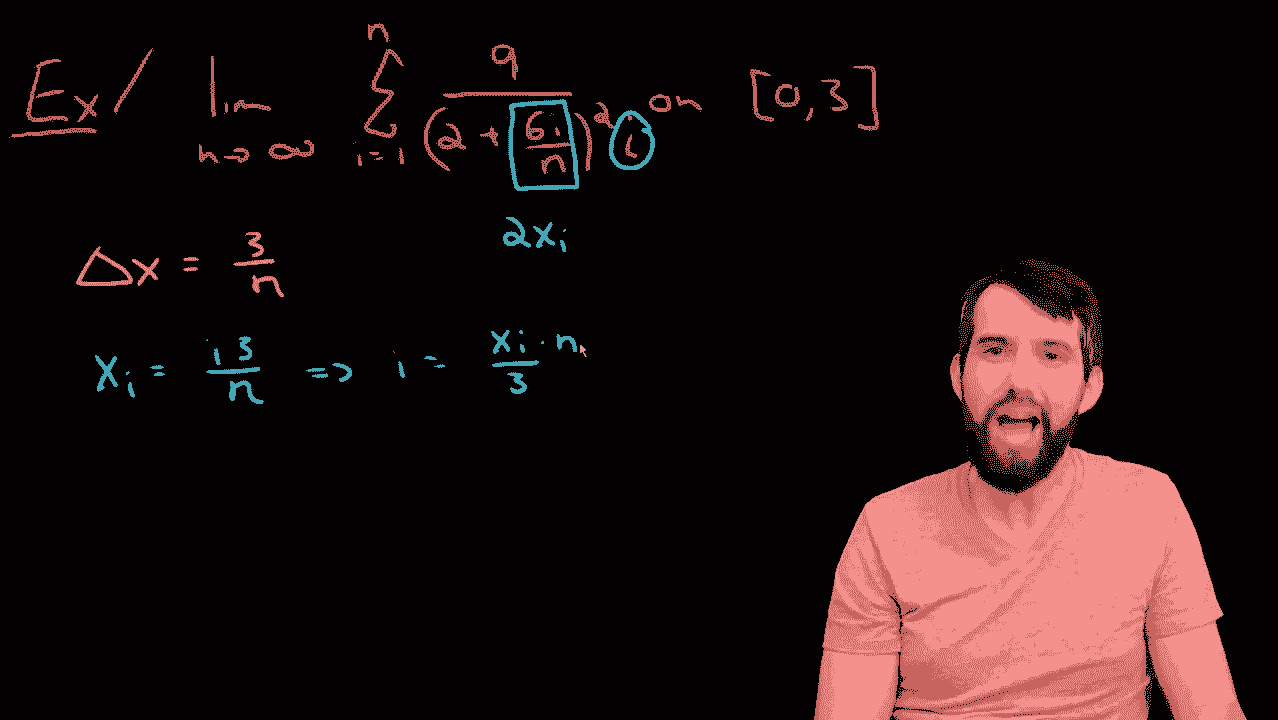 Ex/ lim n→∞ n Σ i=1 9/(2 + 6i/n)² i on [0,3]
2xi
Δx = 3/n
xi = i3/n ⇒ i = xi·n/3